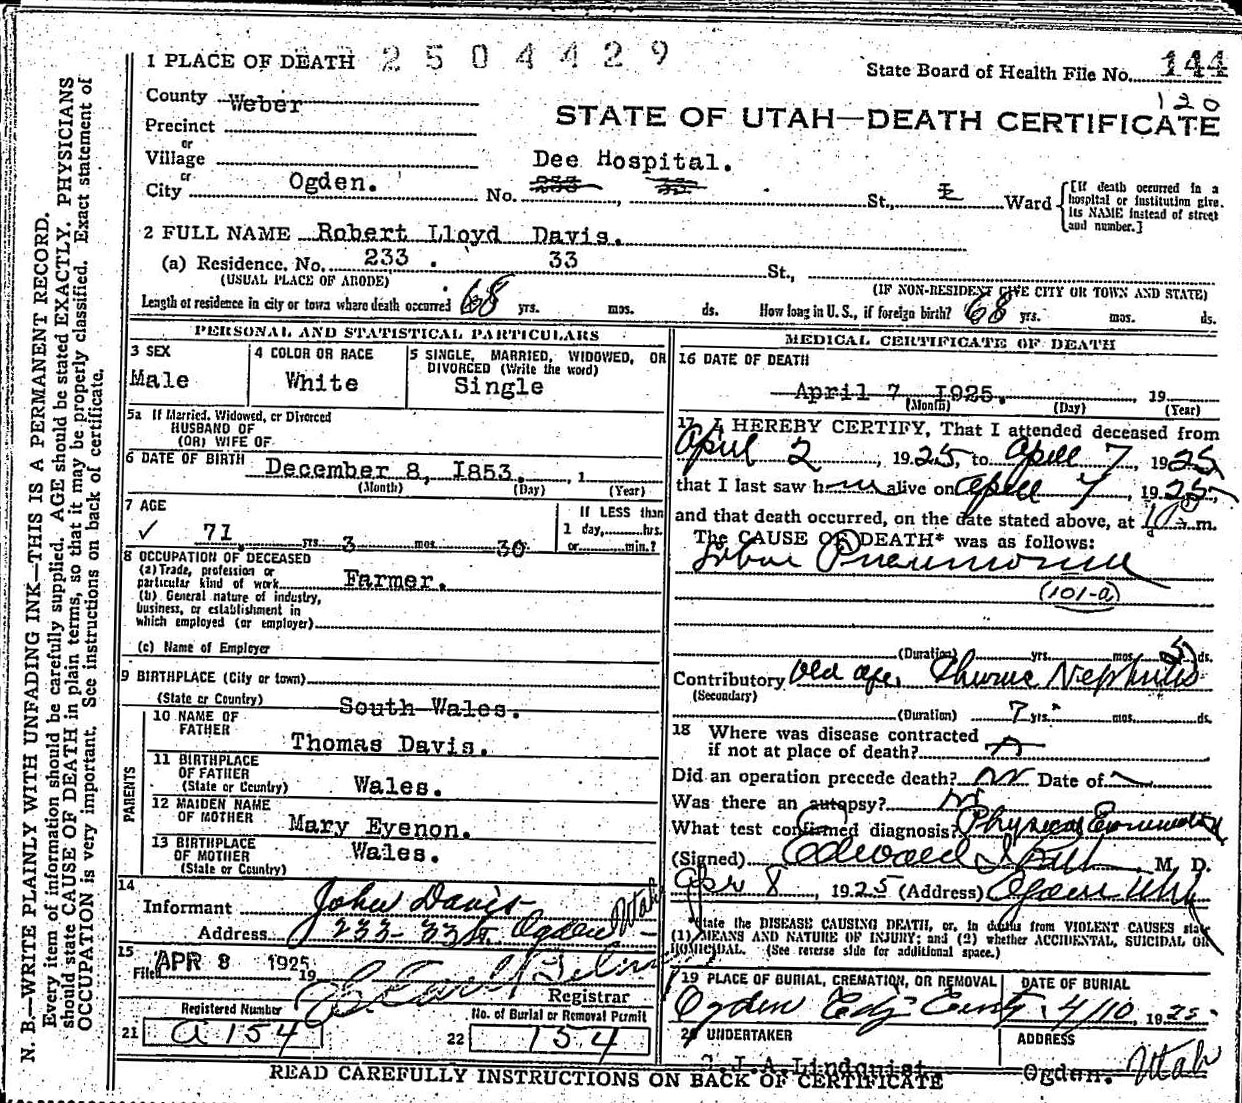 1 PLACE OF DEATH 2504429
State Board of Health File No. 144
120
County Weber
STATE OF UTAH—DEATH CERTIFICATE
Precinct
or
Village
Dee Hospital.
or
City Ogden. No. 233 33 St., Ward
[If death occurred in a hospital or institution give its NAME instead of street and number.]
2 FULL NAME Robert Lloyd Davis.
(a) Residence. No. 233 . 33 St.,
(USUAL PLACE OF ABODE) (IF NON-RESIDENT GIVE CITY OR TOWN AND STATE)
Length of residence in city or town where death occurred 68 yrs. mos. ds. How long in U. S., if foreign birth? 68 yrs. mos. ds.
PERSONAL AND STATISTICAL PARTICULARS
3 SEX
Male
4 COLOR OR RACE
White
5 SINGLE, MARRIED, WIDOWED, OR
DIVORCED (Write the word)
Single
5a If Married, Widowed, or Divorced
HUSBAND OF
(OR) WIFE OF
6 DATE OF BIRTH December 8, 1853. , 1
(Month) (Day) (Year)
7 AGE
✓ 71 yrs. 3 mos. 30
If LESS than
1 day, hrs.
or min.?
8 OCCUPATION OF DECEASED
(a) Trade, profession or
particular kind of work Farmer.
(b) General nature of industry,
business, or establishment in
which employed (or employer)
(c) Name of Employer
9 BIRTHPLACE (City or town)
(State or Country) South Wales.
PARENTS
10 NAME OF
FATHER Thomas Davis.
11 BIRTHPLACE
OF FATHER
(State or Country) Wales.
12 MAIDEN NAME
OF MOTHER Mary Eyenon.
13 BIRTHPLACE
OF MOTHER
(State or Country) Wales.
14
Informant John Davis
Address 233-33 St. Ogden Utah
15
Filed APR 8 1925 19
Registrar
Registered Number
21 a 154
No. of Burial or Removal Permit
22 154
MEDICAL CERTIFICATE OF DEATH
16 DATE OF DEATH
April 7 1925. , 19
(Month) (Day) (Year)
17 I HEREBY CERTIFY, That I attended deceased from
April 2, 1925, to April 7, 1925
that I last saw him alive on April 7, 1925,
and that death occurred, on the date stated above, at m.
The CAUSE OF DEATH* was as follows:
Lobar Pneumonia
(101-a)
(Duration) yrs. mos. 5 ds.
Contributory Old age, Chronic Nephritis
(Secondary)
(Duration) 7 yrs. mos. ds.
18 Where was disease contracted
if not at place of death?
Did an operation precede death? no Date of
Was there an autopsy? no
What test confirmed diagnosis? Physical Examination
(Signed) Edward I M. D.
Apr 8, 1925 (Address) Ogden Utah
*State the DISEASE CAUSING DEATH, or, in deaths from VIOLENT CAUSES state
(1) MEANS AND NATURE OF INJURY; and (2) whether ACCIDENTAL, SUICIDAL OR
HOMICIDAL. (See reverse side for additional space.)
19 PLACE OF BURIAL, CREMATION, OR REMOVAL DATE OF BURIAL
Ogden City Cemt. 4/10, 1925.
20 UNDERTAKER ADDRESS
J.A. Lindquist. Ogden. Utah
READ CAREFULLY INSTRUCTIONS ON BACK OF CERTIFICATE
N. B.—WRITE PLAINLY WITH UNFADING INK—THIS IS A PERMANENT RECORD.
Every item of information should be carefully supplied. AGE should be stated EXACTLY. PHYSICIANS
should state CAUSE OF DEATH in plain terms, so that it may be properly classified. Exact statement of
OCCUPATION is very important. See instructions on back of certificate.